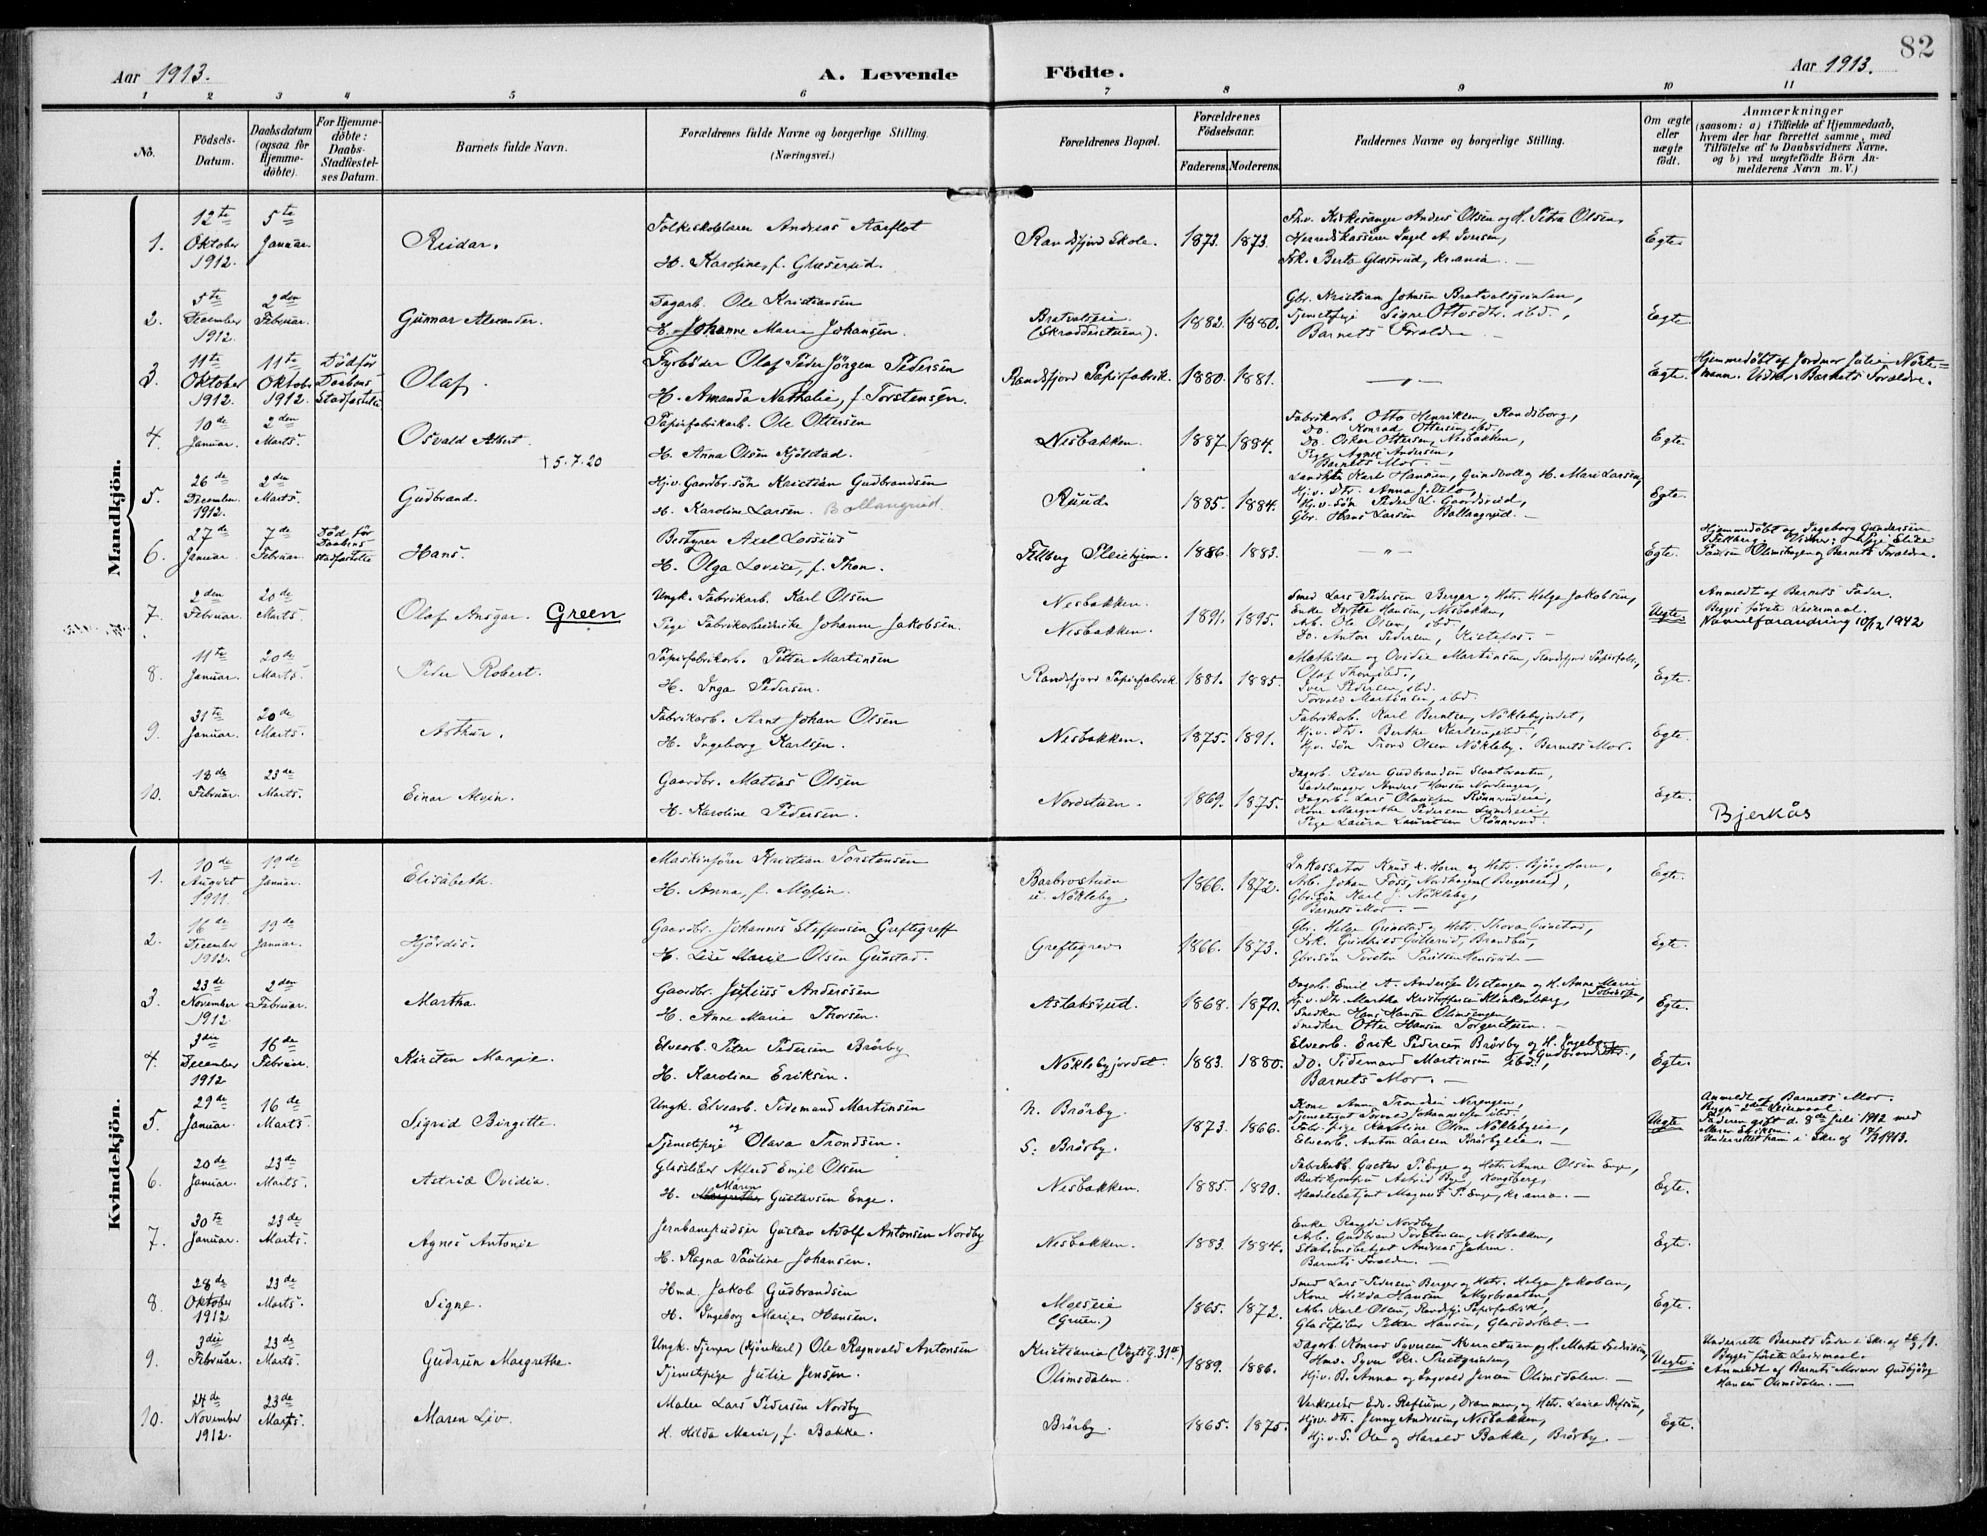 82
Aar 1913.
A. Levende Födte.
Aar 1913.
1 2 3 4 5 6 7 8 9 10 11
No.
Födsels-Datum.
Daabsdatum (ogsaa for Hjemme-döbte).
For Hjemme-döbte: Daabs-Stadfæstel-ses Datum.
Barnets fulde Navn.
Forældrenes fulde Navne og borgerlige Stilling.
(Næringsvei.)
Forældrenes Bopæl.
Forældrenes Födselsaar.
Faderens. Moderens.
Faddernes Navne og borgerlige Stilling.
Om ægte eller uægte födt.
Anmærkninger
(saasom: a) i Tilfælde af Hjemmedaab,
hvem der har forrettet samme, med
Tilföielse af to Daabsvidners Navne.
og b) ved uægtefödte Börn An-
melderens Navn m. V.)
Mandkjön.
1. 12te Oktober 1912. 5te Januar. Reidar. Folkeskolelærer Andreas Aarflot
H. Karoline, f. Glæserud. Randsfjord Skole. 1873. 1873. Fhv. Kirkesanger Anders Olsen og H. Petra Olsen,
Herredskasserer Ingel A. Iversen,
Frk. Berta Glæserud, Kr.ania. — Egte.
2. 5te December 1912. 2den Februar. Gunnar Alexander. Dagarb. Ole Kristiansen
H. Johanne Marie Johansen. Bratvalseie. (Skrædderstuen). 1882. 1880. Gbr. Kristian Johnsen Bratvalsgrinden,
Tjenestpige Signe Ottosdtr. ibd.,
Barnets Forældre — Egte
3. 11te Oktober 1912. 11te Oktober 1912. Död för Daabens Stadfæstelse Olaf. Fyrböder Olaf Peder Jörgen Pedersen
H. Amanda Nathalie, f. Torstensen. Randsfjord Papirfabrik. 1880. 1881. — " — Egte. Hjemmedöbt af Jordmor Julie Nöste-
mann. Vidner: Barnets Forældre.
4. 10de Januar. 2den Marts. Osvald Albert. † 5.7.20 Papirfabrikarb. Ole Ottersen
H. Anna Olsen Kjölstad. Nesbakken. 1887. 1884. Fabrikarb. Otto Henriksen, Randsborg,
Do. Konrad Ottersen, ibd.,
Do. Oskar Ottersen, Nesbakken,
Pige Agnes Andersen,
Barnets Mor. — Egte.
5. 26de December 1912. 2den Marts. Gudbrand. Hj.v. Gaardbr.sön Kristian Gudbrandsen
H. Karoline Larsen. Ruud. 1885. 1884. Karl Hansen, Grindvoll og H. Mari Larsen,
Hj.v. dtr. Anna J. Felo,
Hj.v. sön Peder L. Gaardsrud,
Gbr. Hans Larsen Ballangrud. — Egte.
6. 27de Januar. 7de Februar. Död för Daabens Stadfæstelse Hans. Bestyrer Axel Lossius
H. Olga Lovice, f. Thon. Felberg Pleiehjem. 1886. 1883. — " — Egte. Hjemmedöbt af Ingeborg Gundersen
Felberg. Vidner: Pige Elise
Paulsen Olimshagen og Barnets Forældre.
7. 2den Februar. 20de Marts. Olaf Ansgar. Green Ungk. Fabrikarb. Karl Olsen
Pige Fabrikarbeiderske Johanne Jakobsen. Nesbakken.
Nesbakken. 1891. 1895. Smed Lars Pedersen Berger og Hstr. Helga Jakobsen,
Enke Dorte Hansen, Nesbakken,
Arb. Ole Olsen, ibd.,
Do. Anton Pedersen, Kistefos. — Uegte. Anmeldt af Barnets Fader.
Begges förste Leiermaal.
Navneforandring 10/12 1942
8. 11te Januar. 20de Marts. Peder Robert. Papirfabrikarb. Petter Martinsen
H. Inga Pedersen. Randsfjord Papirfabrik. 1881. 1885. Mathilde og Ovidia Martinsen, Randsfjord Papirfabr.,
Olaf Thon, ibd.,
Iver Pedersen, ibd.
Torvald Martinsen, ibd. Egte.
9. 31te Januar. 20de Marts. Arthur. Fabrikarb. Arnt Johan Olsen
H. Ingeborg Karlsen. Nesbakken. 1875. 1891. Fabrikarb. Karl Berntsen, Nöklebyjordet,
Hj.v. Dtr. Berthe Karlsen, ibd.,
Hj.v. Sön Trond Olsen Nökleby. Barnets Mor. Egte.
10. 18de Februar. 23de Marts. Einar Alvin. Gaardbr. Matias Olsen
H. Karoline Pedersen. Nordstuen. 1869. 1875. Dagarb. Peder Gudbrandsen Slaatbraaten,
Sadelmager Anders Hansen Nordengen,
Dagarb. Lars Olaussen Rönnerudeie,
Kone Margrethe Pedersen Lundseie,
Pige Laura Lauritsen Rönnerud. Egte. Bjerkås
Kvindekjön.
1. 10de August 1911. 19de Januar. Elisabeth. Maskinförer Kristian Torstensen
H. Anna, f. Melin. Barbrostuen u. Nökleby. 1866. 1872. Inkassator Knud K. Horn og Hstr. Björg Horn,
Arb. Johan Foss, Nordhagen (Bergereie),
Gbr.sön Karl J. Nökleby,
Barnets Mor. — Egte.
2. 16de December 1912. 19de Januar. Hjördis. Gaardbr. Johannes Steffensen Greftegreff
H. Lise Marie Olsen Gunstad. Greftegrev. 1866. 1873. Gbr. Helge Grinstad og Hstr. Thora Grinstad,
Frk. Gudhild Gullerud, Brandbu,
Gbr.sön Torsten Paulsen Hensrud. — Egte.
3. 23de November 1912. 2den Februar. Martha. Gaardbr. Julius Anderssen
H. Anne Marie Thorsen. Aslaksrud. 1868. 1870. Dagarb. Emil A. Anderssen Vestengen og H. Anne Marie Tobiassen,
Hj.v. Dtr. Marthe Kristoffersen Klinkenberg,
Snedker Hans Hansen Olimsengen,
Snedker Otter Hansen Torgerstuen. — Egte.
4. 3die December 1912 16de Februar. Kirsten Margie. Elvearb. Peter Pedersen Brörby
H. Karoline Eriksen. Nöklebyjordet. 1883. 1880. Elvearb. Erik Pedersen Brörby og H. Ingeborg Gudbrandsdtr.,
Do. Tidemand Martinsen ibd.,
Barnets Mor. — Egte.
5. 29de Januar. 16de Marts. Sigrid Birgitte. Ungk. Elvearb. Tidemand Martinsen
og
Tjenestpige Olava Trondsen. N. Brörby.
S. Brörby. 1873. 1866. Kone Anne Trondsen Nerengen,
Tjenestgut Torvald Johannesen ibd.,
Fabr. pige Karoline Olsen Nöklebyeie,
Elvearb. Anton Larsen Brörbyeie. — Uegte Anmeldt af Barnets Mor.
Begges 2det Leiermaal.
Faderen gift d. 8de Juli 1912 med
Maren Eriksen.
Underrettet ham i Skr. af 17/3 1913.
6. 20de Januar. 23de Marts. Astrid Ovidia. Glassliber Alfred Emil Olsen
H. Maren Gustavsen Enge. Nesbakken. 1885. 1890. Fabrikarb. Gustav P. Enge og Hstr. Anne Olsen Enge,
Butikjomfru Astrid Bye, Kongsberg,
Handelsbetjent Magnus P. Enge, Kr.ania. — Egte.
7. 30te Januar. 23de Marts. Agnes Antonie Jernbanepudser Gustav Adolf Antonsen Nordby
H. Ragna Pauline Johansen. Nesbakken. 1883. 1884. Enke Ragndi Nordby,
Arb. Gudbrand Torstensen, Nesbakken,
Stationsbetjent Andreas Jahren.
Barnets Forældre. — Egte.
8. 28de Oktober 1912. 23de Marts. Signe. Hmd. Jakob Gudbrandsen
H. Ingeborg Marie Hansen. Moeseie (Gruen.) 1865. 1872. Smed Lars Pedersen Berger og Hstr. Helga Jakobsen,
Kone Hilda Hansen Mysbraaten,
Arb. Karl Olsen, Randsfj. Papirfabrik,
Glassliber Petter Hansen, Glasværket. — Egte.
9. 3die Februar. 23de Marts. Gudrun Margrethe. Ungk. Tjener (Kjörekarl) Ole Ragnvald Antonsen
Tjenestpige Julie Jensen. Kristiania (Vogts G. 31)
Olimsdalen. 1889. 1886. Dagarb. Konrad Syversen Kvernstuen og H. Marta Fredriksen,
Hmd. Syver Kr. Prestgrinden,
Hj.v. B. Anna og Ingvald Jensen Olimsdalen. — Uegte. Underrettet Barnets Fader i Skr. af 26/3.
Begges förste Leiermaal.
Anmeldt af Barnets Mormor Gudbjörg
Hansen Olimsdalen. —
10. 24de November 1912. 23de Marts. Maren Liv. Maler Lars Pedersen Nordby
H. Hilda Marie, f. Bakke. Brörby. 1865. 1875. Værkseier Edv. Refsum, Drammen, og Hstr. Laura Refsum,
Hj.v. dtr. Jenny Andresen, Nesbakken,
Hj.v. S. Ole og Harald Bakke, Brörby. — Egte.